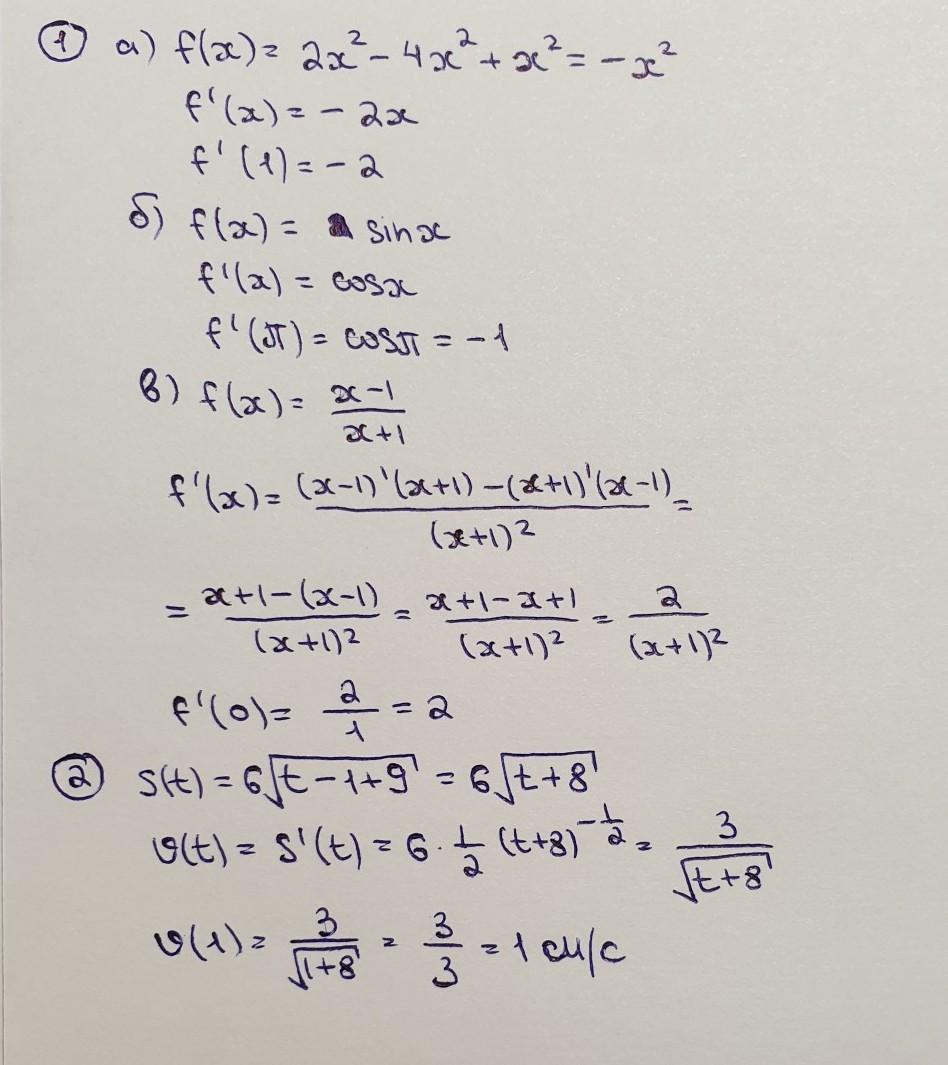 ① а) f(x) = 2x² - 4x² + x² = -x²
f'(x) = -2x
f'(1) = -2
б) f(x) = sinx
f'(x) = cosx
f'(π) = cosπ = -1
в) f(x) = (x-1)/(x+1)
f'(x) = ((x-1)'(x+1) - (x+1)'(x-1))/(x+1)² =
= (x+1-(x-1))/(x+1)² = (x+1-x+1)/(x+1)² = 2/(x+1)²
f'(0) = 2/1 = 2
② S(t) = 6√(t-1+9) = 6√(t+8)
υ(t) = S'(t) = 6 · 1/2 (t+8)^(-1/2) = 3/√(t+8)
υ(1) = 3/√(1+8) = 3/3 = 1 см/с